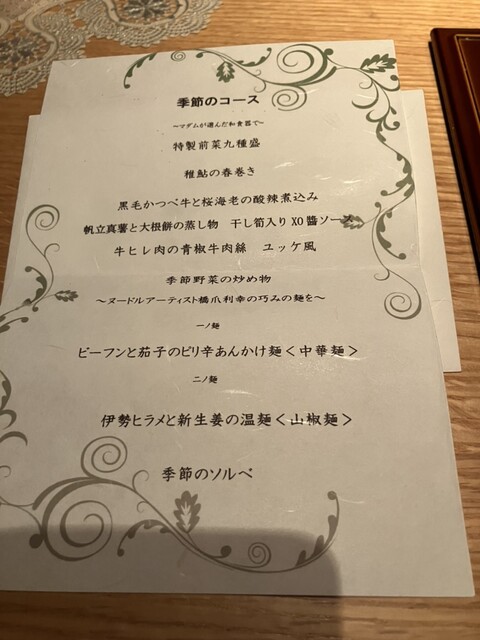 季節のコース
～マダムが選んだ和食器で～
特製前菜九種盛
稚鮎の春巻き
黒毛かつべ牛と桜海老の酸辣煮込み
帆立真薯と大根餅の蒸し物　干し筍入りXO醬ソース
牛ヒレ肉の青椒牛肉絲　ユッケ風
季節野菜の炒め物
～ヌードルアーティスト橋爪利幸の巧みの麺を～
一ノ麺
ビーフンと茄子のピリ辛あんかけ麺＜中華麺＞
二ノ麺
伊勢ヒラメと新生姜の温麺＜山椒麺＞
季節のソルベ